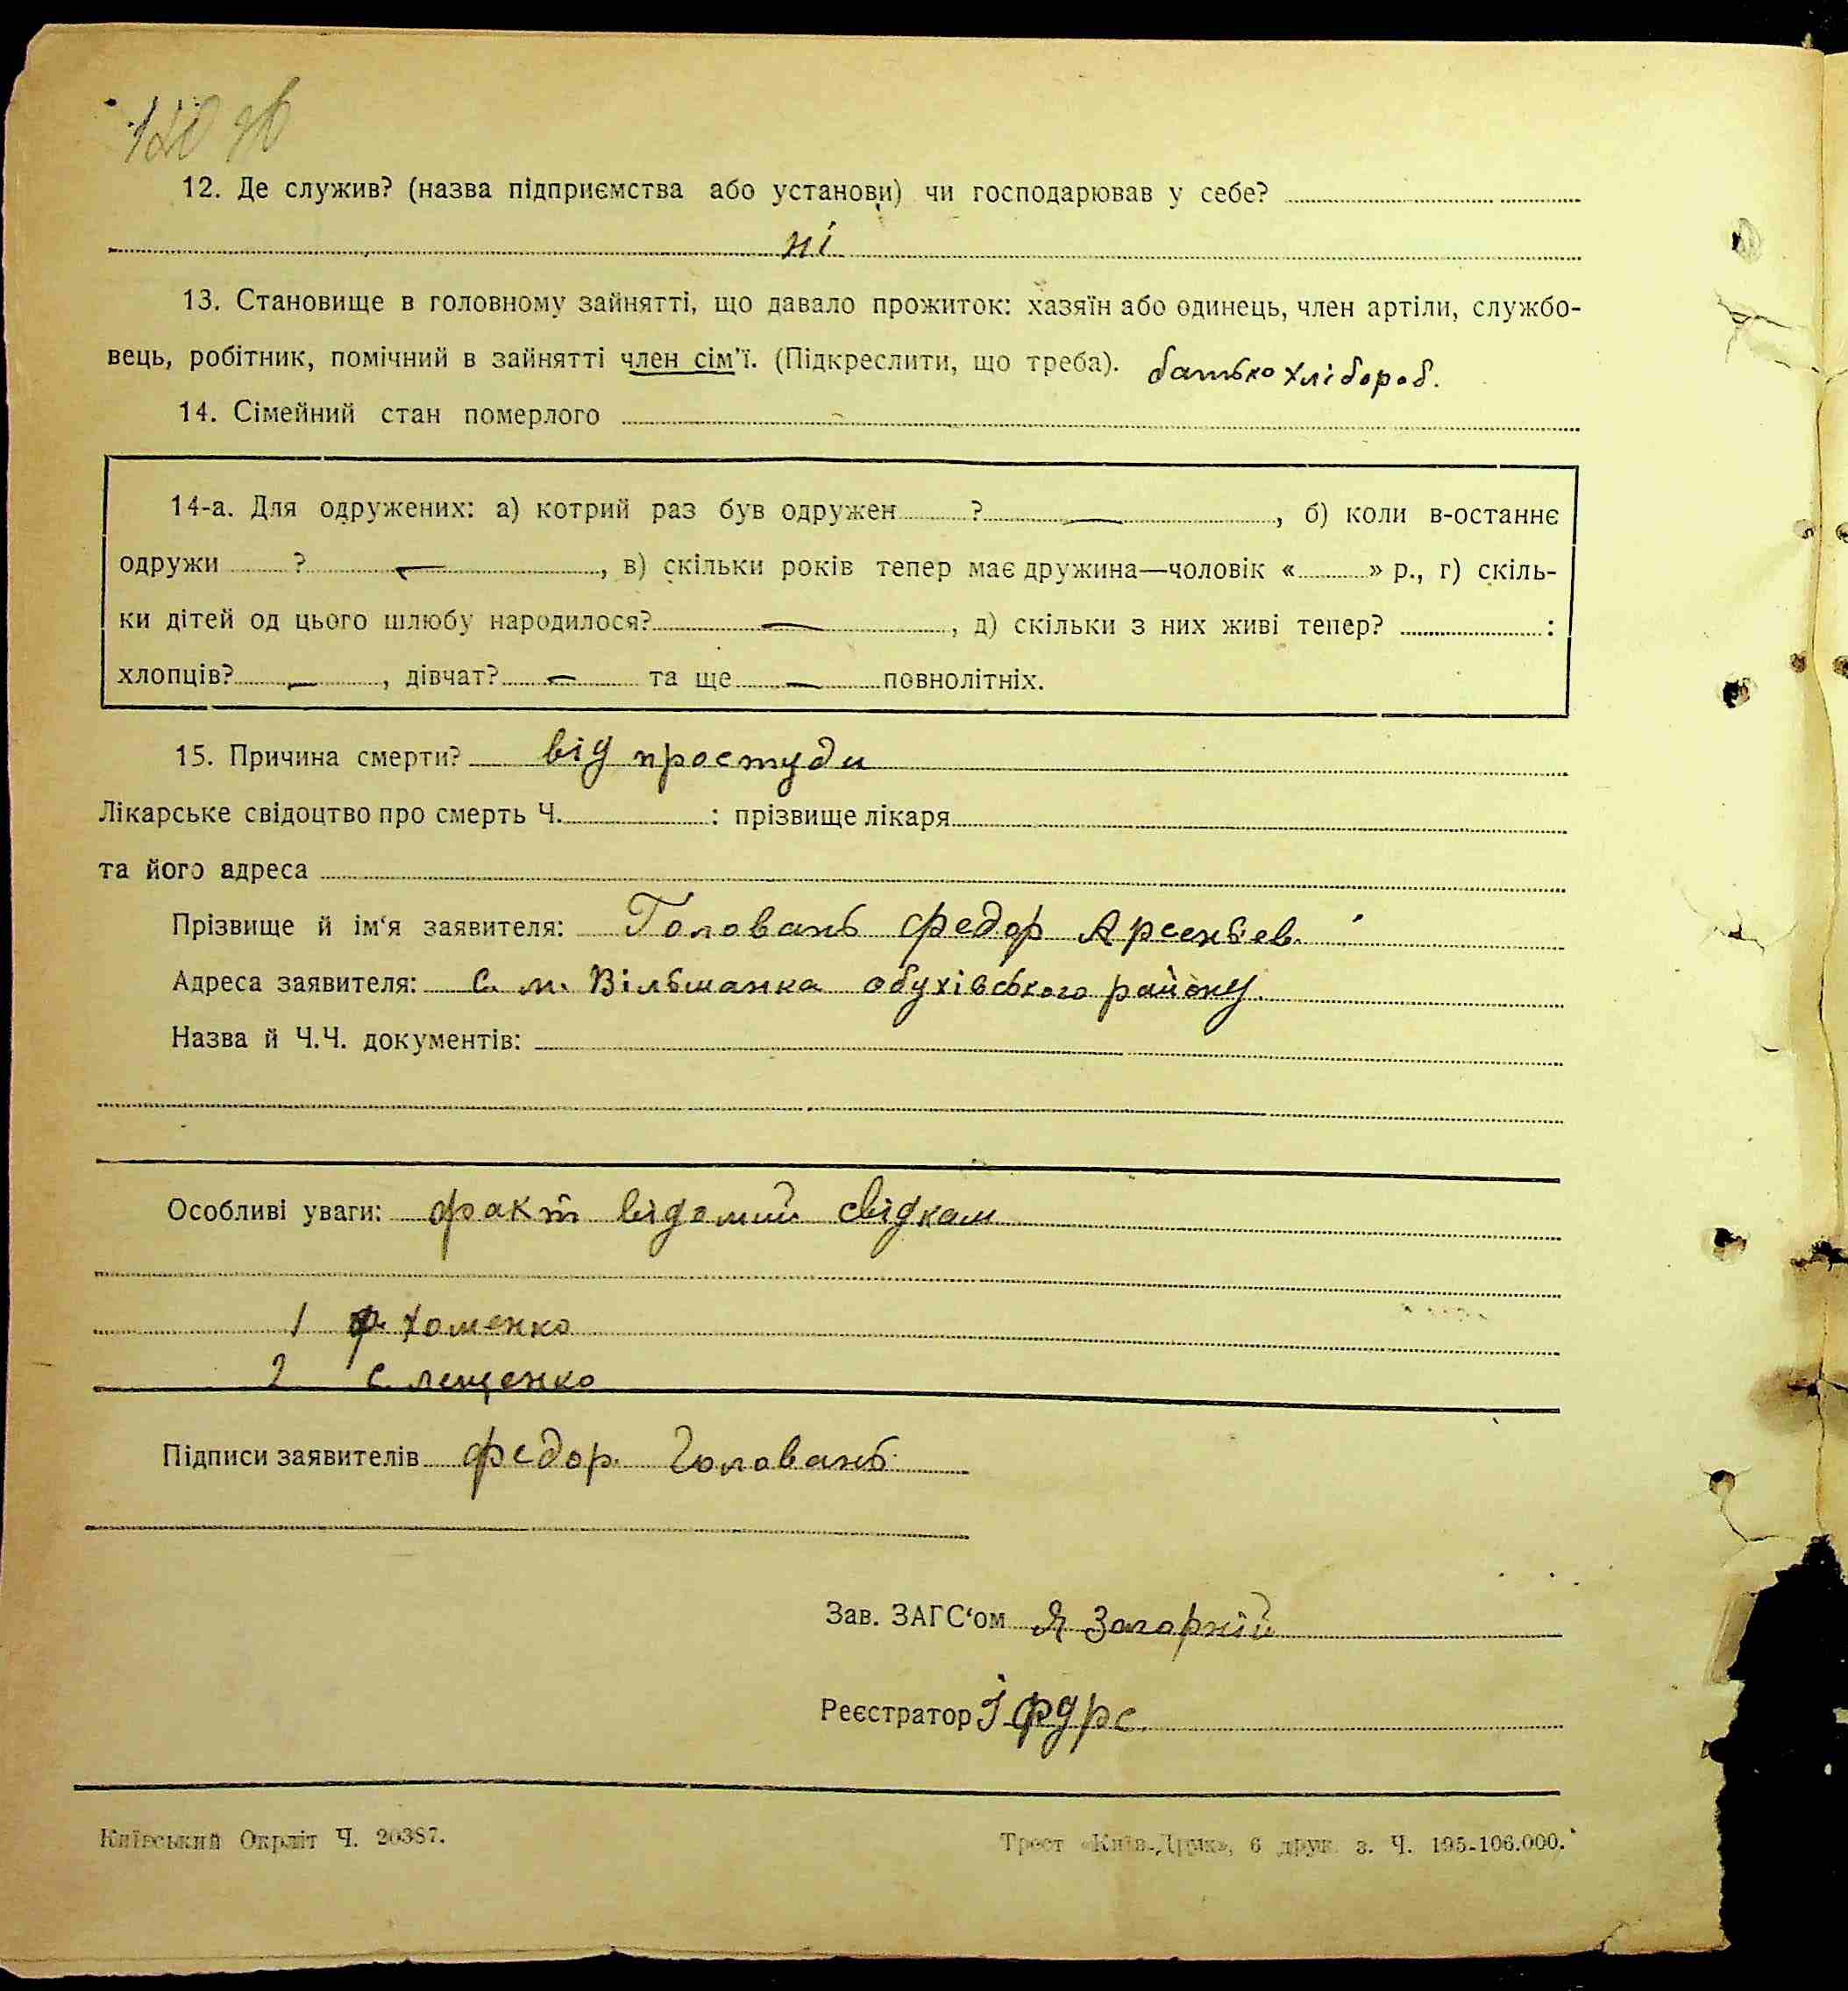 12. Де служив? (назва підприємства або установи) чи господарював у себе?
ні
13. Становище в головному зайнятті, що давало прожиток: хазяїн або одинець, член артіли, службо-
вець, робітник, помічний в зайнятті член сім'ї. (Підкреслити, що треба). батько хлібороб.
14. Сімейний стан померлого
14-а. Для одружених: а) котрий раз був одружен ? —, б) коли в-останнє
одружи ? —, в) скільки років тепер має дружина—чоловік « » р., г) скіль-
ки дітей од цього шлюбу народилося? —, д) скільки з них живі тепер? :
хлопців? —, дівчат? — та ще — повнолітніх.
15. Причина смерти? від простуди
Лікарське свідоцтво про смерть Ч. : прізвище лікаря
та його адреса
Прізвище й ім'я заявителя: Головань Федор Арсеньев.
Адреса заявителя: С. м. Вільшанка обухівського району.
Назва й Ч.Ч. документів:
Особливі уваги: факт відомий свідкам
1 Ф. Хоменко
2 С. Лещенко
Підписи заявителів Федор Головань
Зав. ЗАГС'ом Я Загорній
Реєстратор
Київський Окрліт Ч. 20387.
Трест «Київ-Друк», 6 друк. з. Ч. 195-106.000.